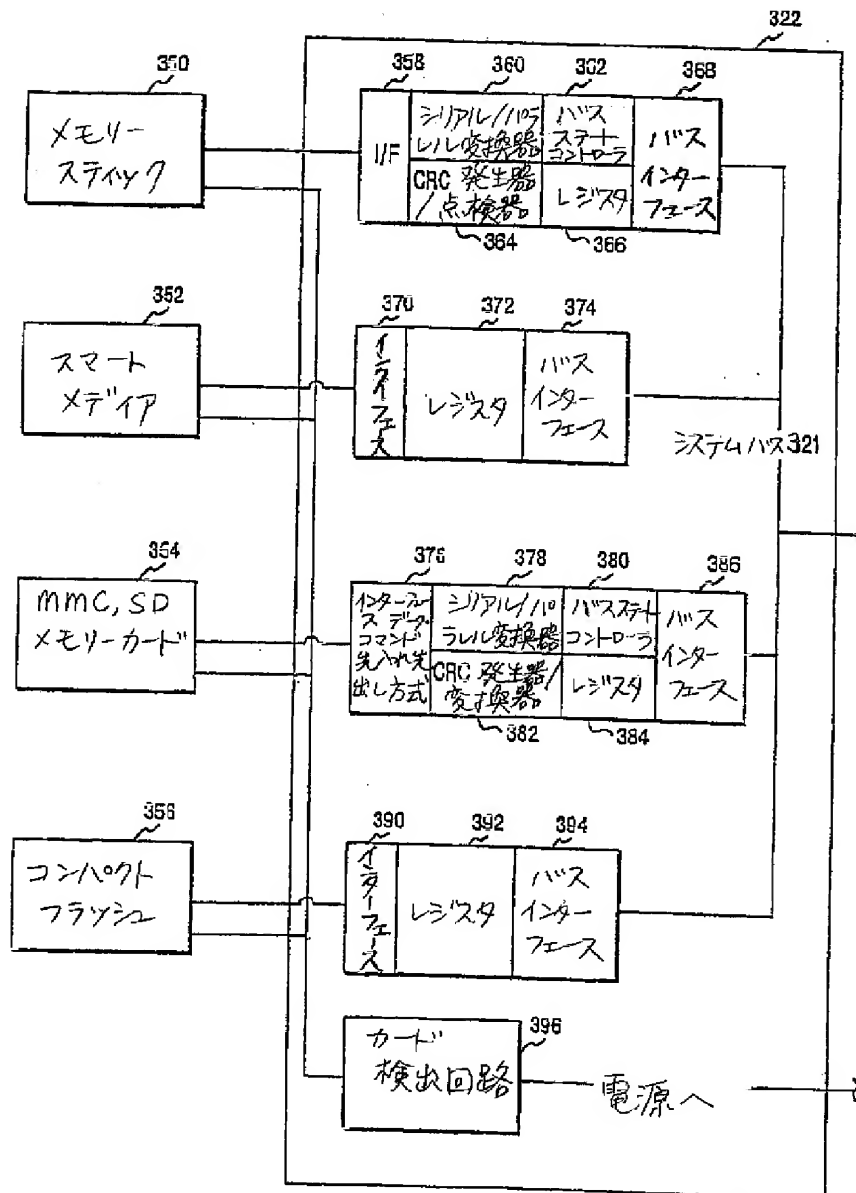 322
350
メモリー
スティック
358
360
362
368
I/F
シリアル/パラ
レル変換器
バス
ステート
コントローラ
バス
インター
フェース
CRC 発生器
/点検器
レジスタ
364
366
352
スマート
メディア
370
372
374
インターフェース
レジスタ
バス
インター
フェース
システムバス321
354
MMC, SD
メモリーカード
376
378
380
386
インターフェー
スデータ・
コマンド
先入れ先
出し方式
シリアル/パ
ラレル変換器
バスステート
コントローラ
バス
インター
フェース
CRC 発生器/
変換器
レジスタ
382
384
356
コンパクト
フラッシュ
390
392
394
インターフェース
レジスタ
バス
インター
フェース
カード
検出回路
396
電源へ